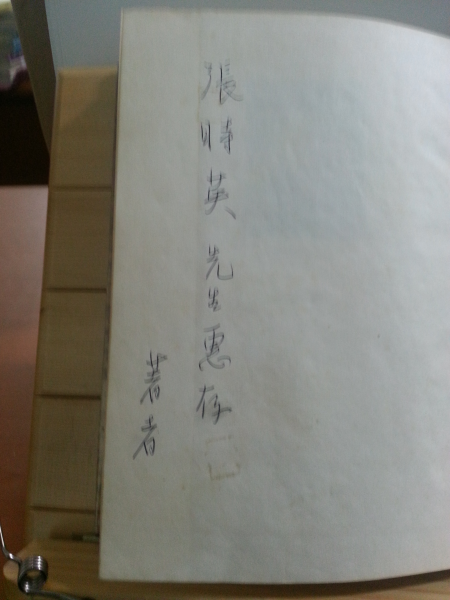 張時英先生惠存
著者